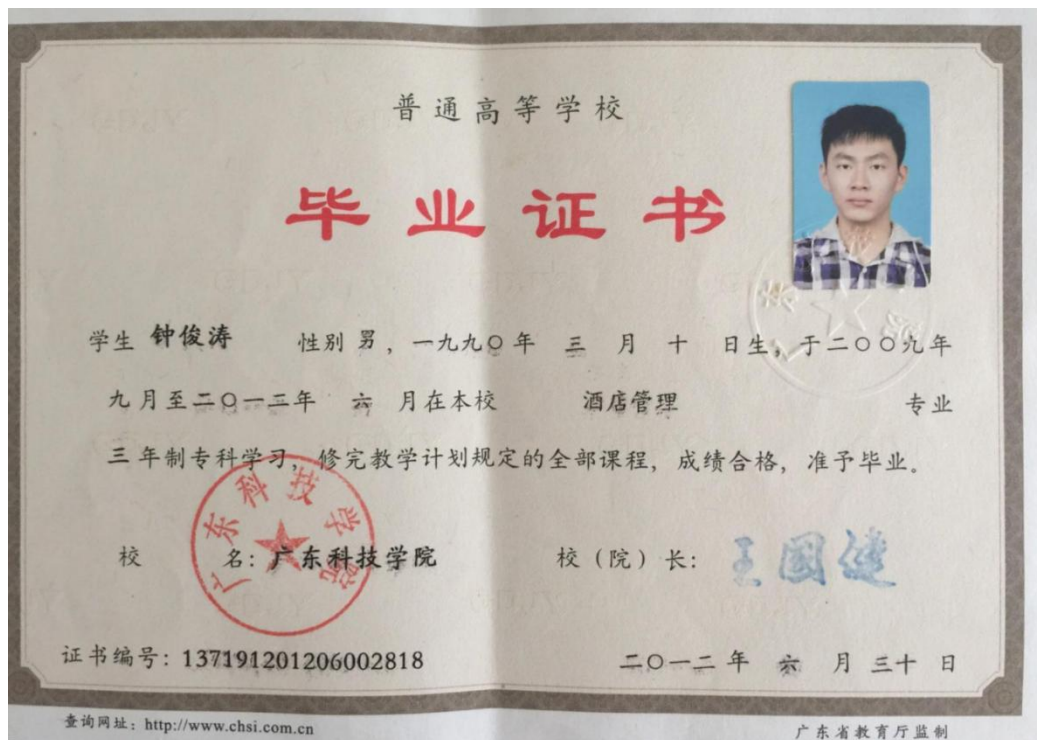 普通高等学校
毕业证书
学生 钟俊涛 性别 男，一九九〇年 三 月 十 日生，于二〇〇九年
九月至二〇一二年 六 月在本校 酒店管理 专业
三年制专科学习，修完教学计划规定的全部课程，成绩合格，准予毕业。
广东科技学院
校 名：广东科技学院 校（院）长：王國健
证书编号：137191201206002818 二〇一二年 六 月 三十 日
查询网址：http://www.chsi.com.cn 广东省教育厅监制